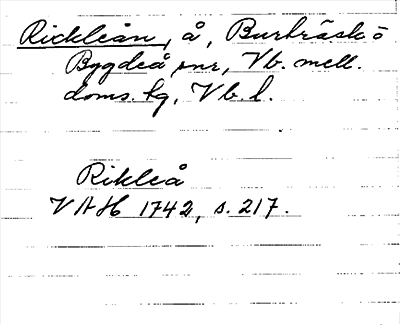 Rickleån, å, Burträsk o
Bygdeå snr, Vb. mell.
doms. hg, Vb. l.
Rikleå
VAH 1742, s. 217.